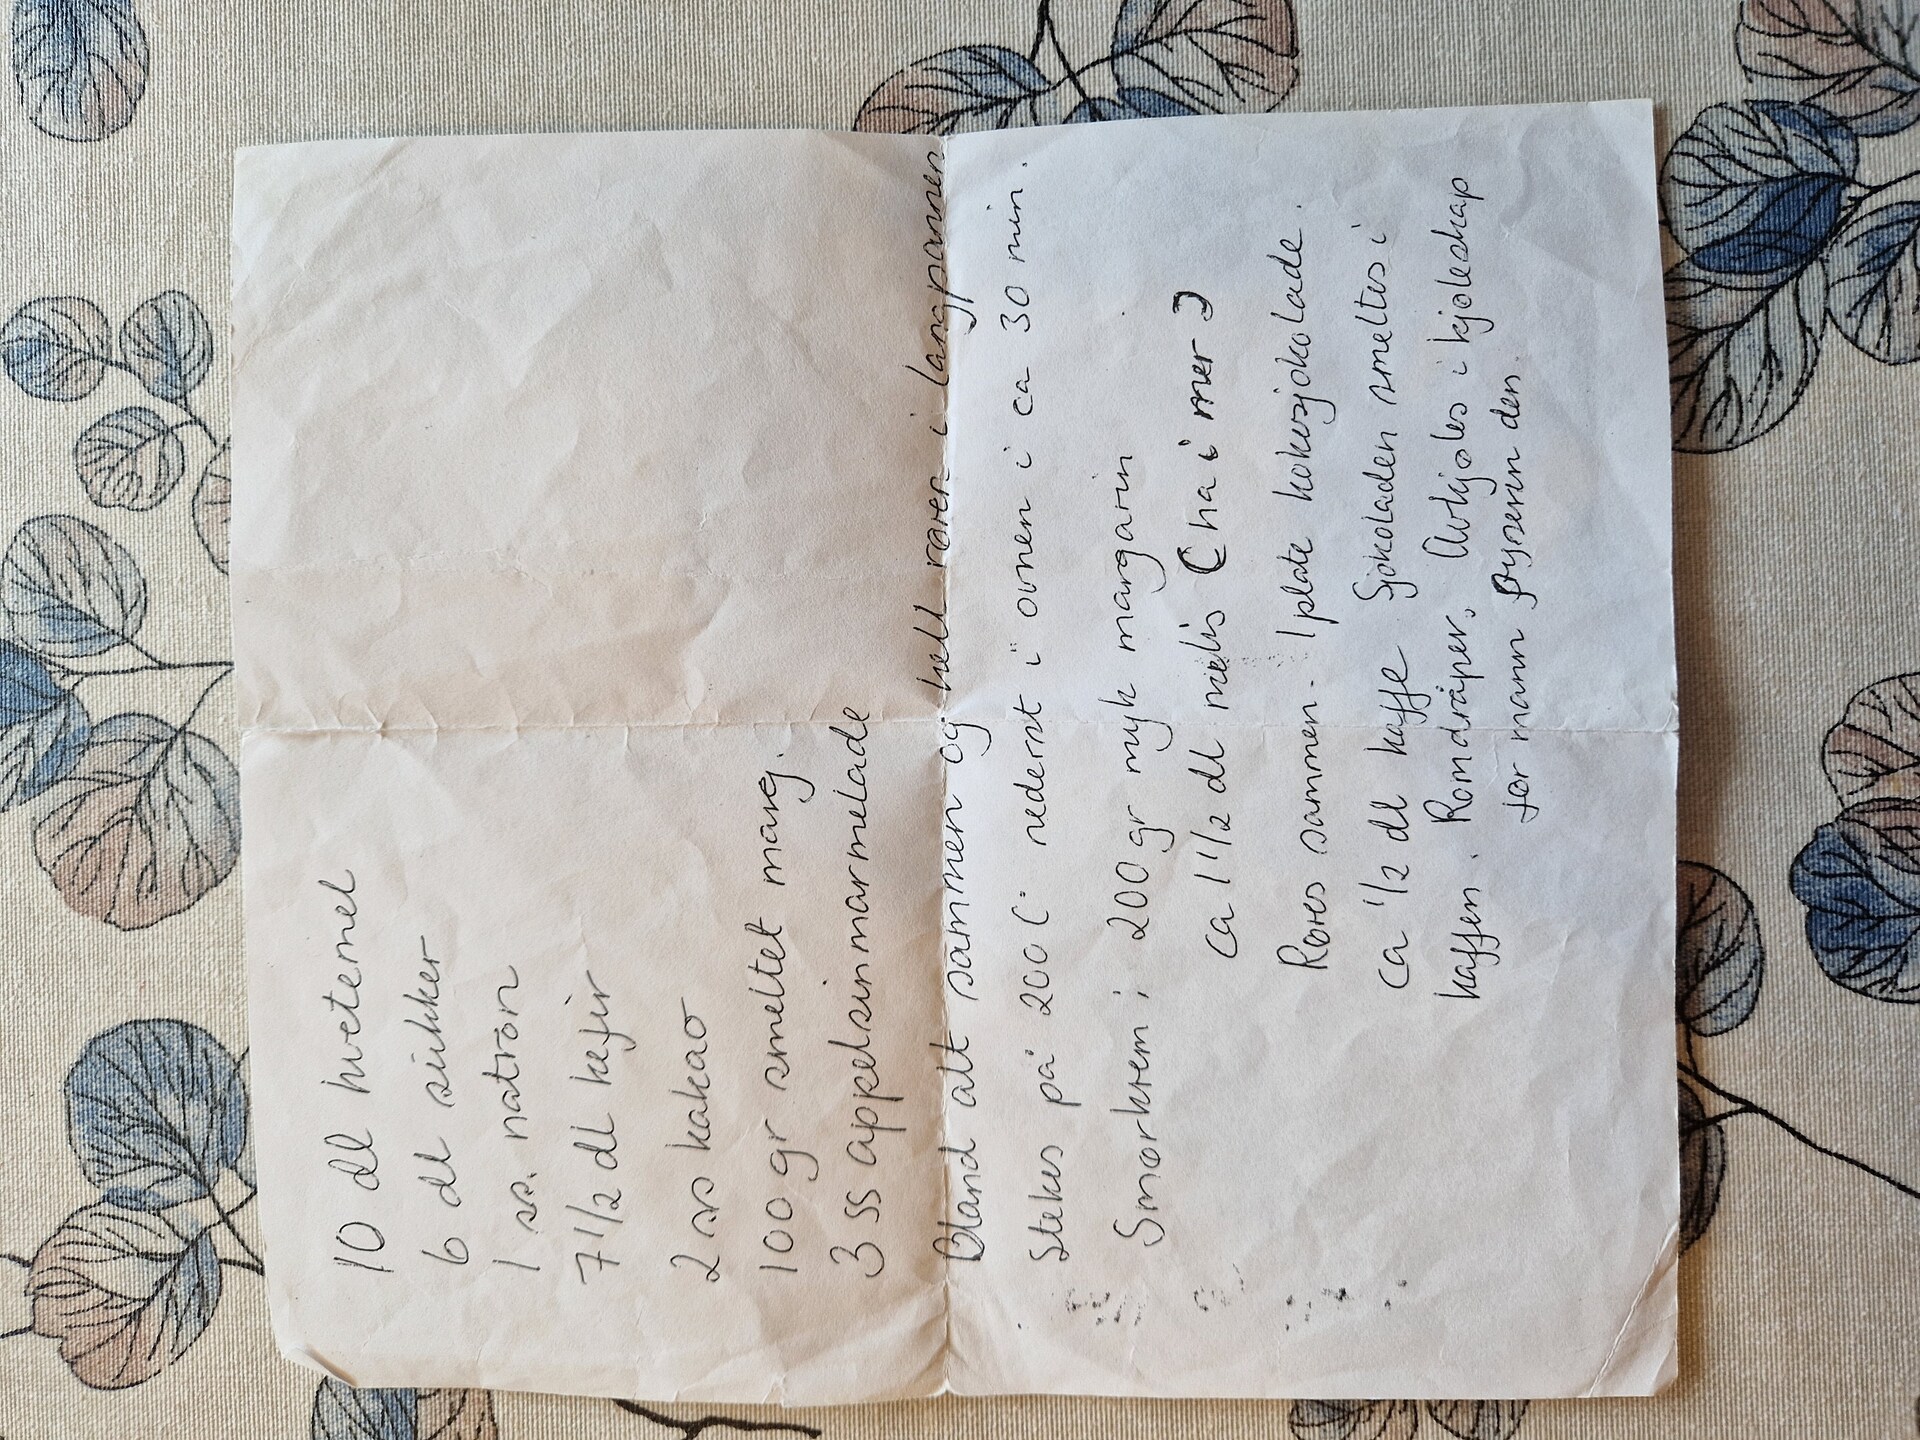 10 dl hvetemel
6 dl sukker
1 ss. natron
7 1/2 dl kefir
2 ss kakao
100 gr smeltet marg.
3 ss appelsinmarmelade
Bland alt sammen og hell røren i langpannen
Stekes på 200 C° nederst i ovnen i ca 30 min.
Smørkrem: 200 gr myk margarin
ca 1 1/2 dl melis (ha i mer)
Røres sammen. 1 plate kokesjokolade.
ca 1/2 dl kaffe Sjokoladen smeltes i
kaffen. Romdråper. Avkjøles i kjøleskap
før mann fryseren den.